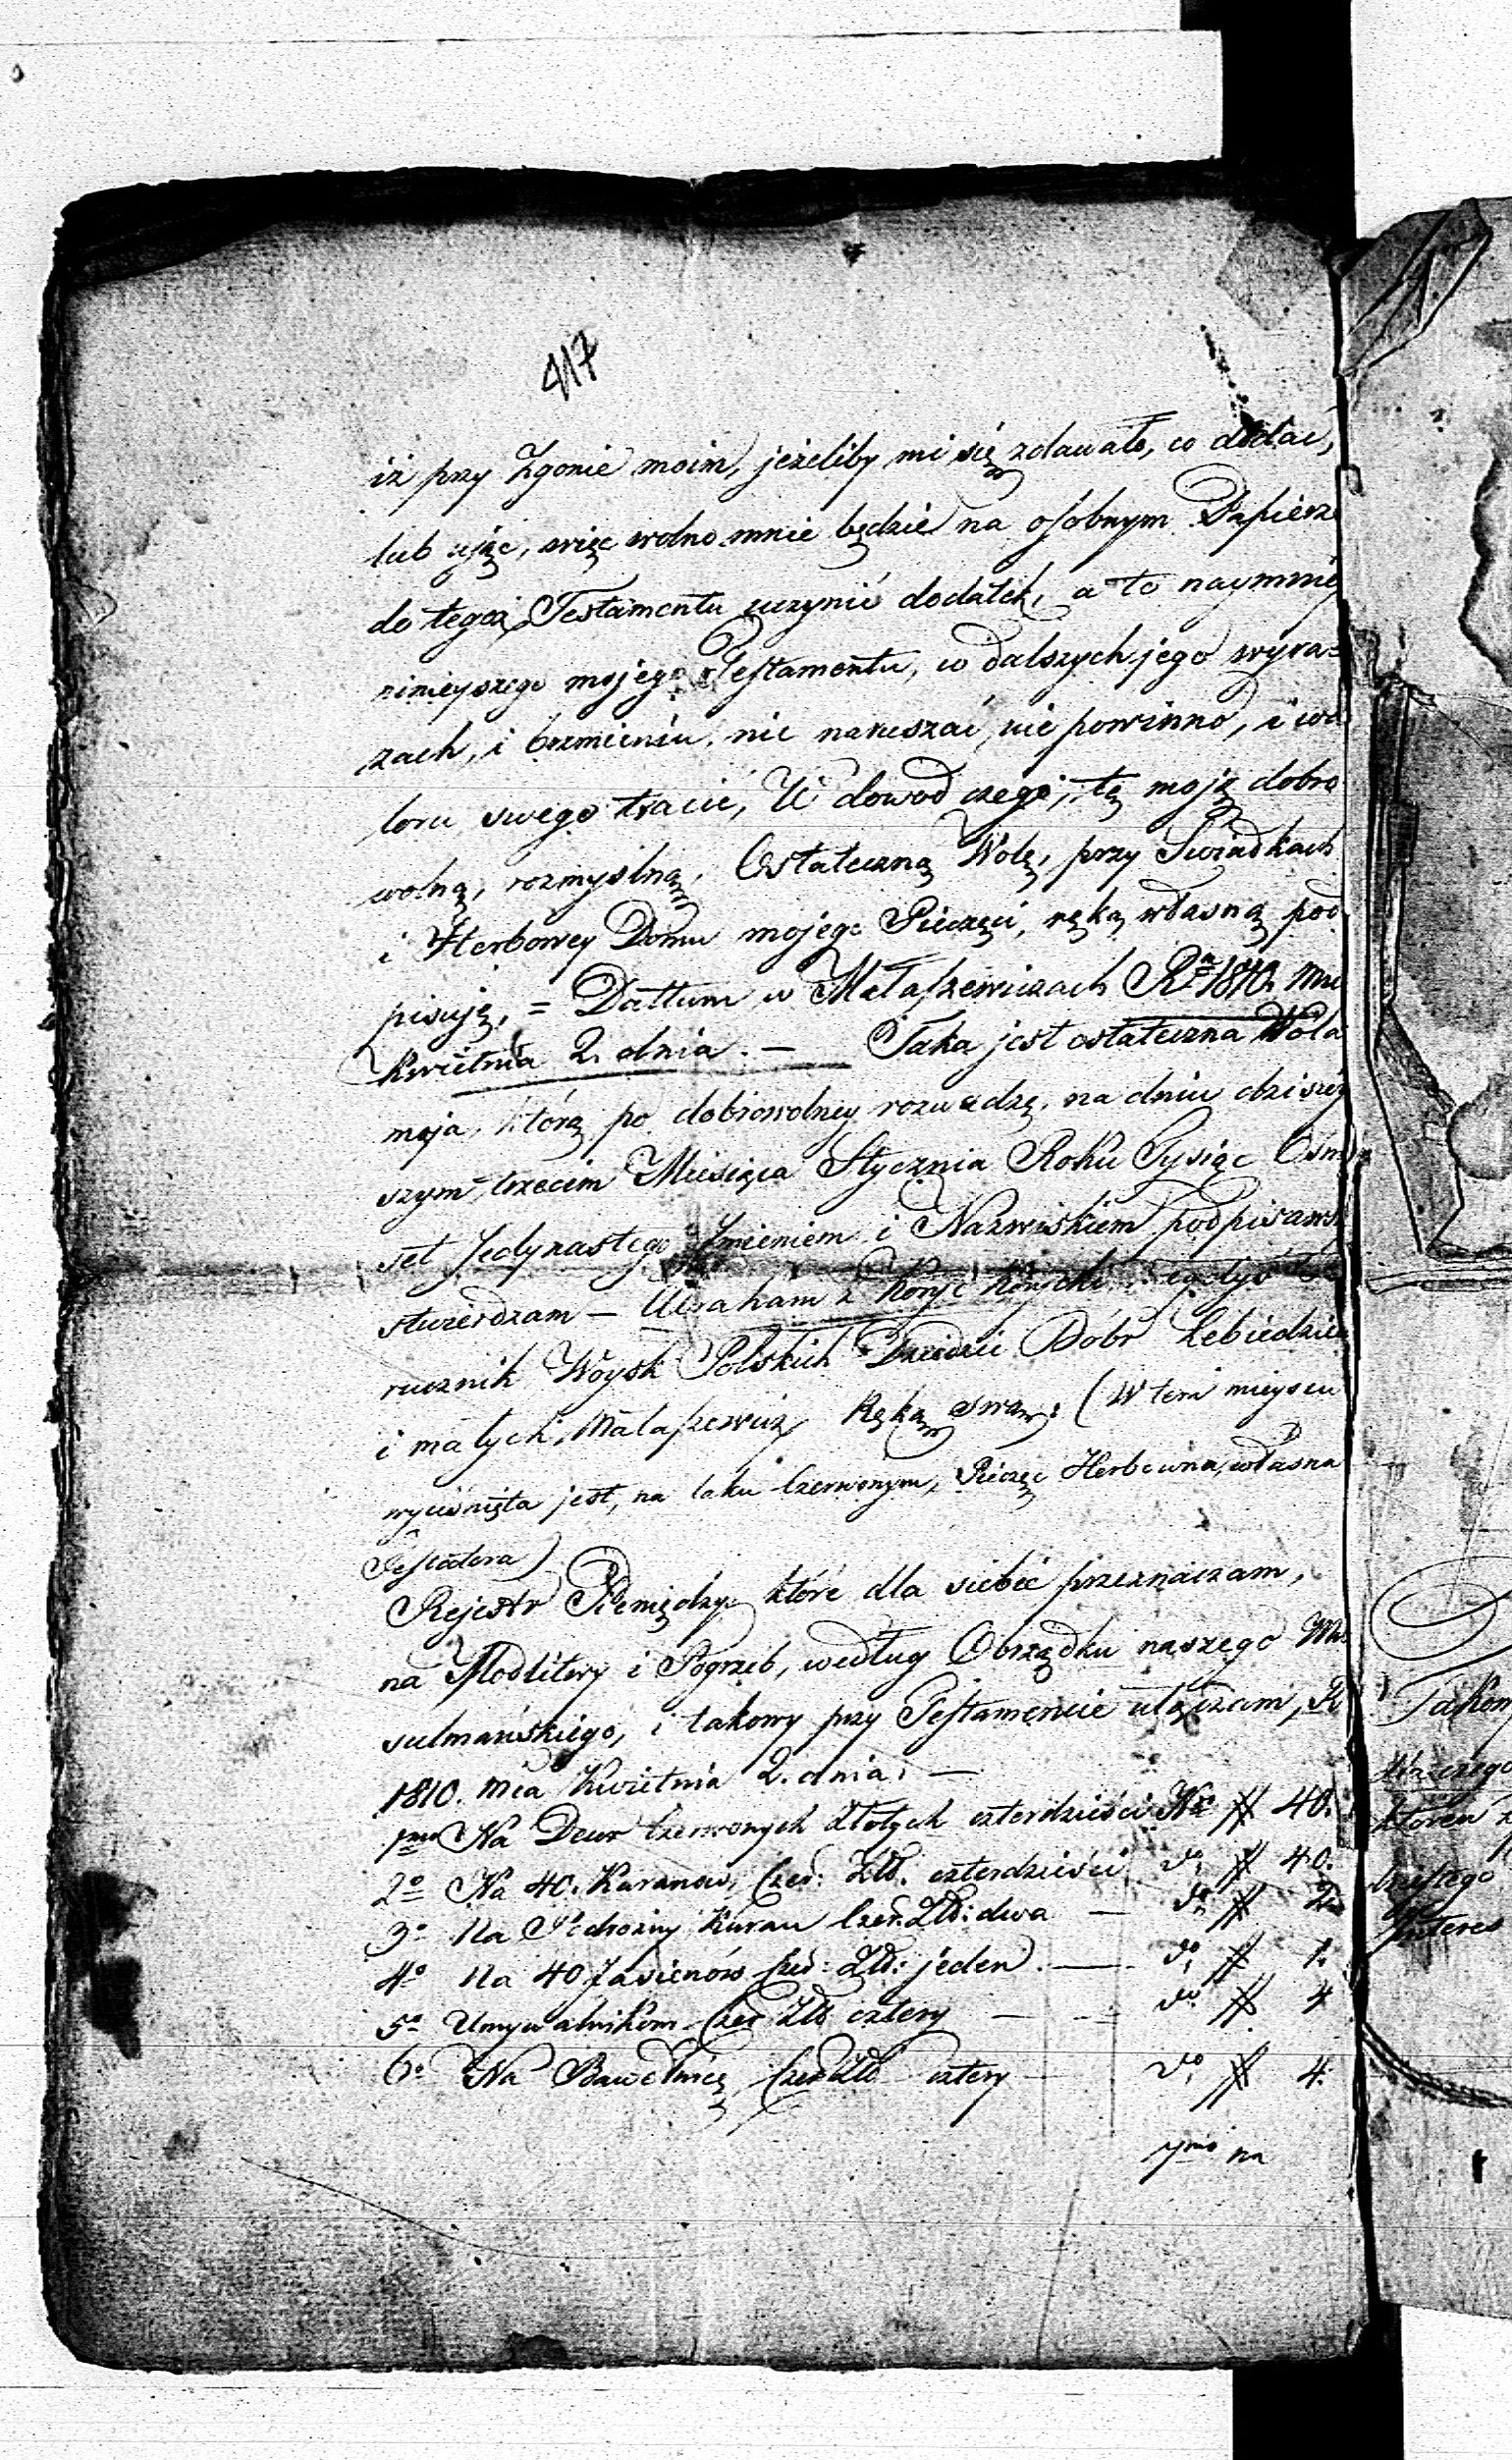 417
iż przy Zgonie moim, jeżeliby mi się zdawało, co dodać,
lub ując, więc wolno mnie będzie na osobnym Papierze
do tegoż Testamentu uczynić dodatek, a to naymniey
ninieyszego mojego Testamentu, w dalszych jego wyra=
zach, i brzmieniu, nic naruszać nie powinno, i wa
loru swego tracić, W dowod czego, tę moją dobro
wolną, rozmyślną, Ostateczną Wolę, przy Swiadkach
i Herbowey Domu mojego Pieczęci, ręką własną pod
pisuję, = Dattum w Małaszewiczach Ru 1810. Mca
Kwietnia 2. dnia. — Taka jest ostateczna Wola
moja, którą po dobrowolney rozwadze, na dniu dzisiey
szym trzecim Miesiąca Stycznia Roku Tysiąc Osm
set Jedynastego Imieniem i Nazwiskiem podpisawszy
stwierdzam — Abraham z Koryc Korycki
rucznik Woysk Polskich Dziedzic Dobr Lebiedziew
i małych Małaszewicz Ręką swą. (W tem mieyscu
wyciśnięta jest, na laku czerwonym, Pieczęć Herbowna, własna
Testatora)
Rejestr Pieniędzy które dla siebie przeznaczam,
na Modlitwy i Pogrzeb, według Obrządku naszego Mu
sulmańskiego, i takowy przy Testamencie ułączam, R
1810. Mca Kwietnia 2. dnia. —
1mo Na Deur Czerwonych Złotych czterdzieści No # 40.
2o Na 40. Kuranow, Czer: Złł. czterdzieści do # 40.
3o Na Kuran Czer. Złł: dwa — do # 2
4o Na 40 Jasienów Czer: Złł: jeden. — do # 1.
5o Umywalnikom Czer Złł cztery — do # 4
6o Na Bawełnicę Czer Złł cztery — do # 4.
7mo na
Takow
dla czego
Interes